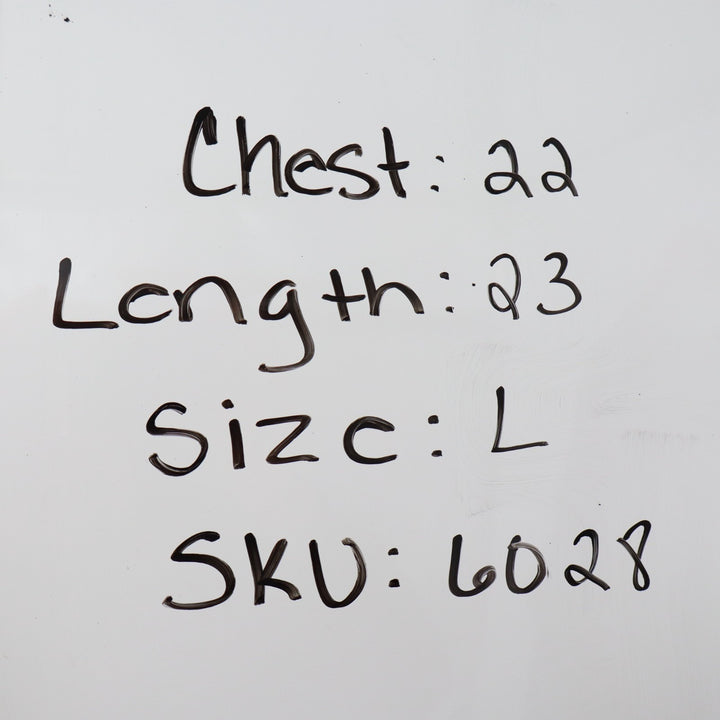 Chest: 22
Length: 23
Size: L
SKU: 6028